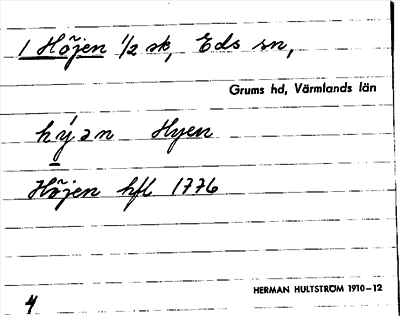 1 Höjen 1/2 sk, Eds sn,
Grums hd, Värmlands län
hý̱ən Hyen
Höjen hfl 1776
HERMAN HULTSTRÖM 1910–12
4